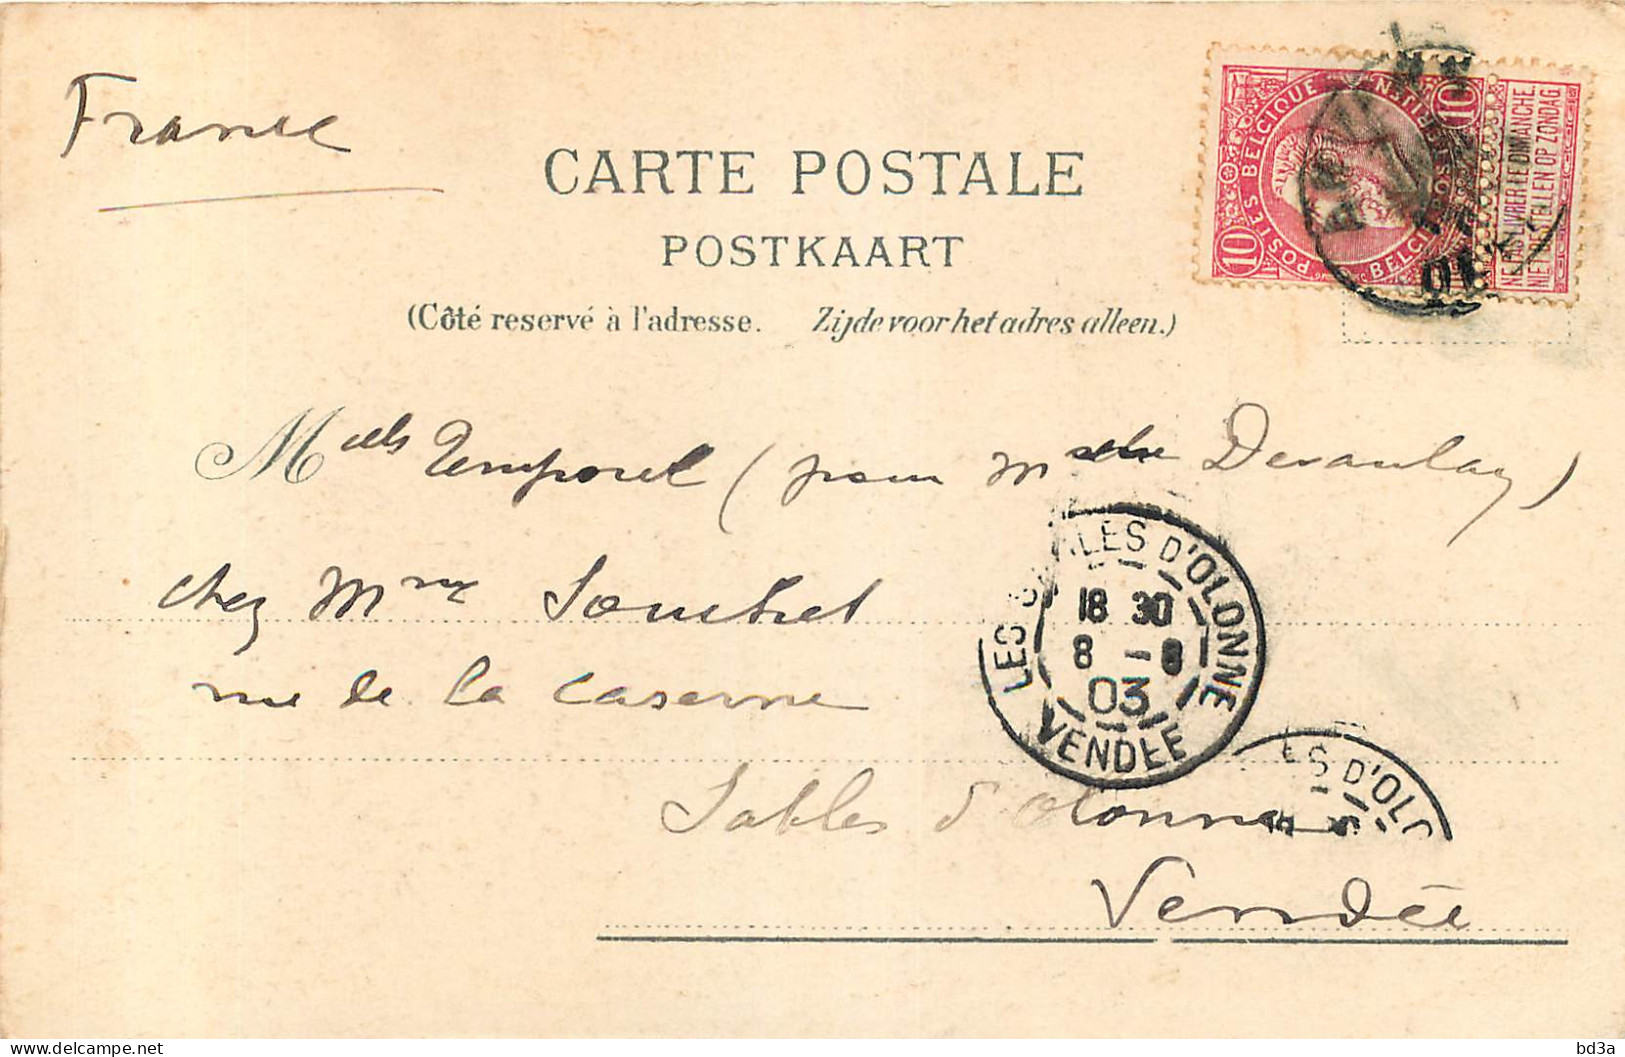 France
CARTE POSTALE
POSTKAART
(Côté reservé à l'adresse. Zijde voor het adres alleen.)
10 POSTES BELGIQUE 10
NE PAS LIVRER LE DIMANCHE
NIET BESTELLEN OP ZONDAG
Melles Temporel (pour Melle Devaulay)
chez Mme Souchet
rue de la Caserne
Sables d'Olonne
Vendée
LES SABLES D'OLONNE
18 30
8 - 8
03
VENDEE
ES D'OLO
bd3a